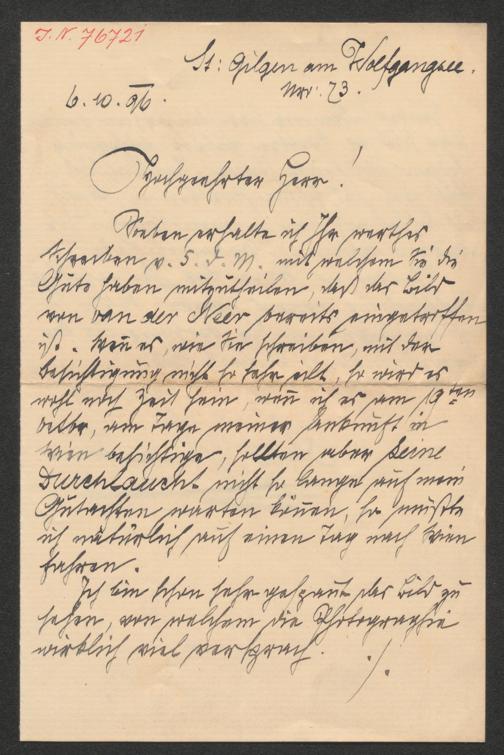 I.N. 76721
St: Gilgen am Wolfgangsee.
Nro: 73.
6.10.96.
Hochgeehrter Herr!
Soeben erhalte ich Ihr werthes
Schreiben v. 5. d. M. mit welchem Sie die
Güte haben mitzutheilen, daß das Bild
von van der Neer bereits eingetroffen
ist. Wenn es, wie Sie schreiben, mit der
Besichtigung nicht so sehr eilt, so wird es
wohl noch Zeit sein, wenn ich es am 19ten
Octbr, am Tage meiner Ankunft in
Wien besichtige, sollten aber Seine
Durchlaucht nicht so lange auf mein
Gutachten warten können, so müßte
ich natürlich auf einen Tag nach Wien
fahren.
Ich bin schon sehr gespannt das Bild zu
sehen, von welchem die Photographie
wirklich viel versprach.
./.